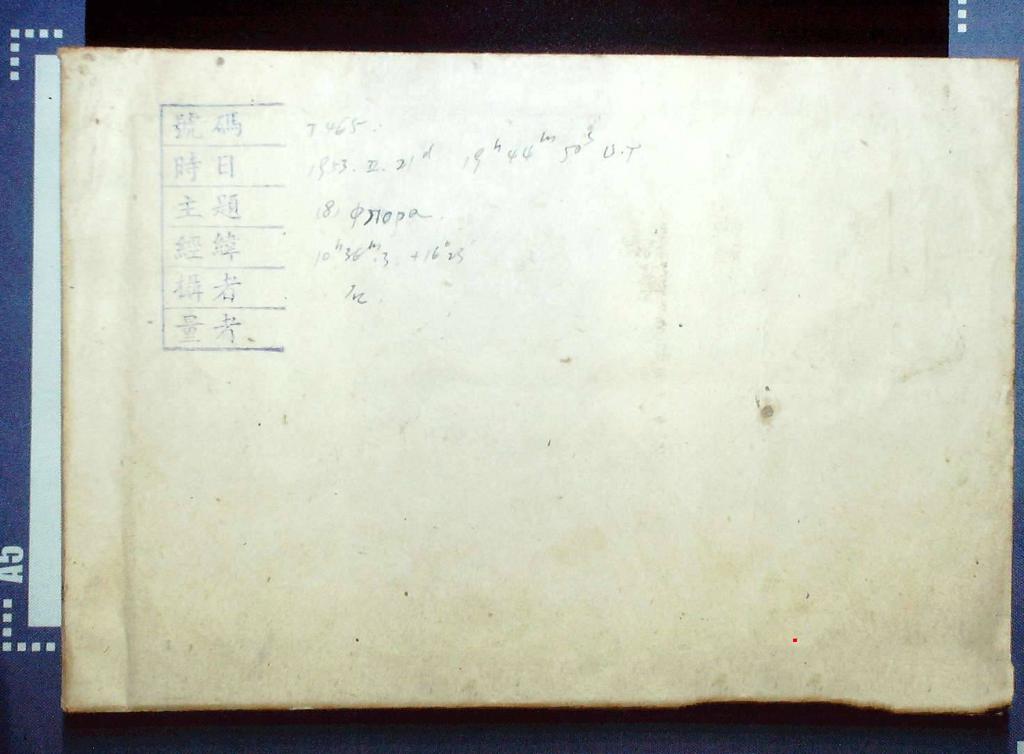 號碼 T465.
時日 1953. II. 21ᵈ 19ʰ 44ᵐ 50ˢ U.T
主題 (8) Флора
經緯 10ʰ36ᵐ.3 +16°23'
攝者
量者
A5